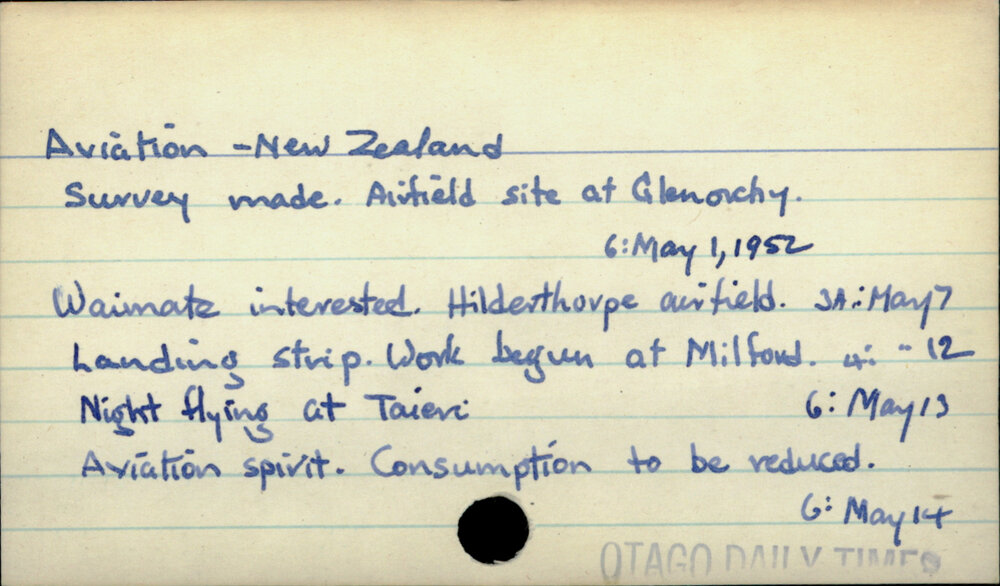 Aviation - New Zealand
Survey made. Airfield site at Glenorchy.
6: May 1, 1952
Waimate interested. Hilderthorpe airfield. 3A: May 7
Landing strip. Work begun at Milford. 4: " 12
Night flying at Taieri 6: May 13
Aviation spirit. Consumption to be reduced.
6: May 14
OTAGO DAILY TIMES